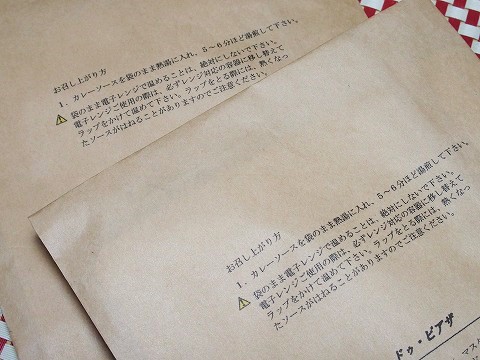 お召し上がり方
1. カレーソースを袋のまま熱湯に入れ、5～6分ほど湯煎して下さい。
⚠袋のまま電子レンジで温めることは、絶対にしないで下さい。
電子レンジご使用の際は、必ずレンジ対応の容器に移し替えて
ラップをかけて温めて下さい。ラップをとる際には、熱くなっ
たソースがはねることがありますのでご注意ください。
お召し上がり方
1. カレーソースを袋のまま熱湯に入れ、5～6分ほど湯煎して下さい。
⚠袋のまま電子レンジで温めることは、絶対にしないで下さい。
電子レンジご使用の際は、必ずレンジ対応の容器に移し替えて
ラップをかけて温めて下さい。ラップをとる際には、熱くなっ
たソースがはねることがありますのでご注意ください。
ドゥ・ピアザ
マスタ